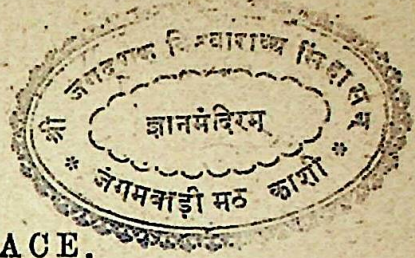 श्री जगद्गुरु विश्वाराध्य सिंहासन
ज्ञानमंदिरम्
* जंगमवाड़ी मठ काशी *
ACE.